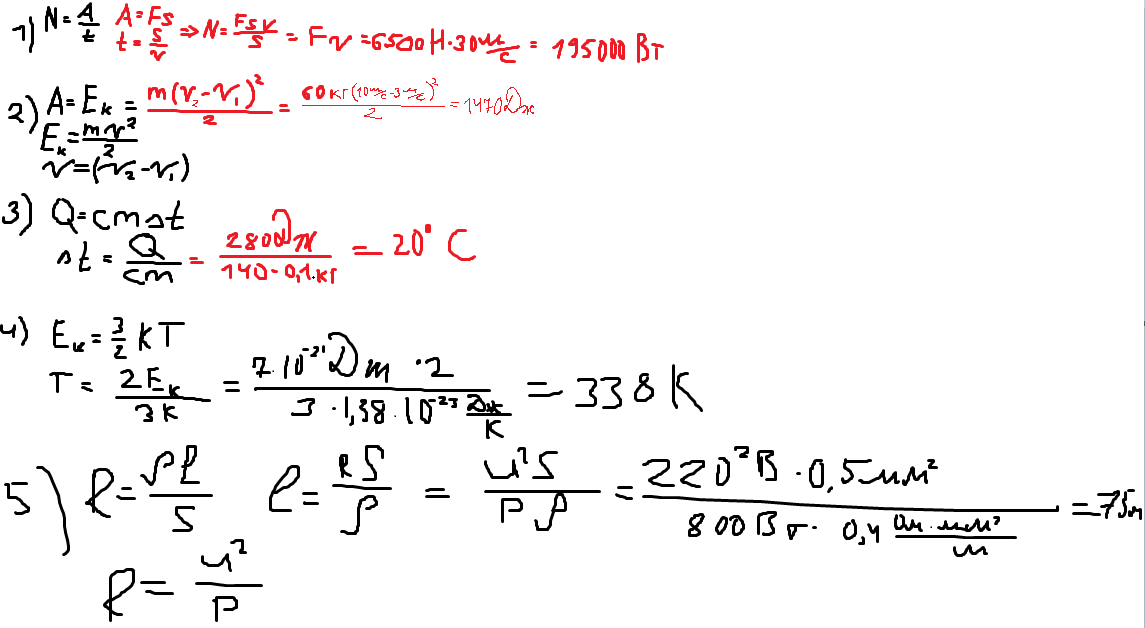 1) N = A/t A = Fs t = s/v ⇒ N = Fsv/s = Fv = 6500 Н · 30 м/с = 195000 Вт
2) A = Eк = m(v₂ - v₁)²/2 = 60 кг (10 м/с - 3 м/с)²/2 = 1470 Дж
Eк = mv²/2
v = (v₂ - v₁)
3) Q = cm△t
△t = Q/cm = 280 Дж/140 · 0,1 кг = 20° C
4) Eк = 3/2 kT
T = 2Eк/3k = 7 · 10⁻²¹ Дж · 2/3 · 1,38 · 10⁻²³ Дж/К = 338 К
5) R = ρl/S l = RS/ρ = U²S/Pρ = 220² В · 0,5 мм²/800 Вт · 0,4 Ом · мм²/м = 75 м
R = U²/P